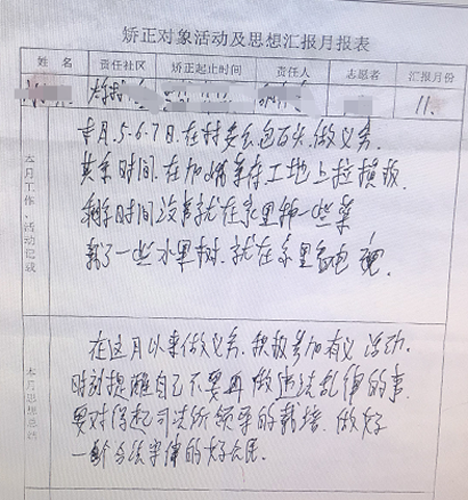 矫正对象活动及思想汇报月报表
姓 名 责任社区 矫正起止时间 责任人 志愿者 汇报月份
11.
本月工作、活动记载
本月.5.6.7日.在村委会 做义务.
其余时间.在加 工地上拉 板.
剩余时间没事就在家里种一些菜
了一些水果树.就在家里看电视.
本月思想总结
在这月以来做义务.积极参加有义活动.
时刻提醒自己不要再做违法乱律的事.
要对得起司法所领导的栽培.做好
一个合法守律的好公民.